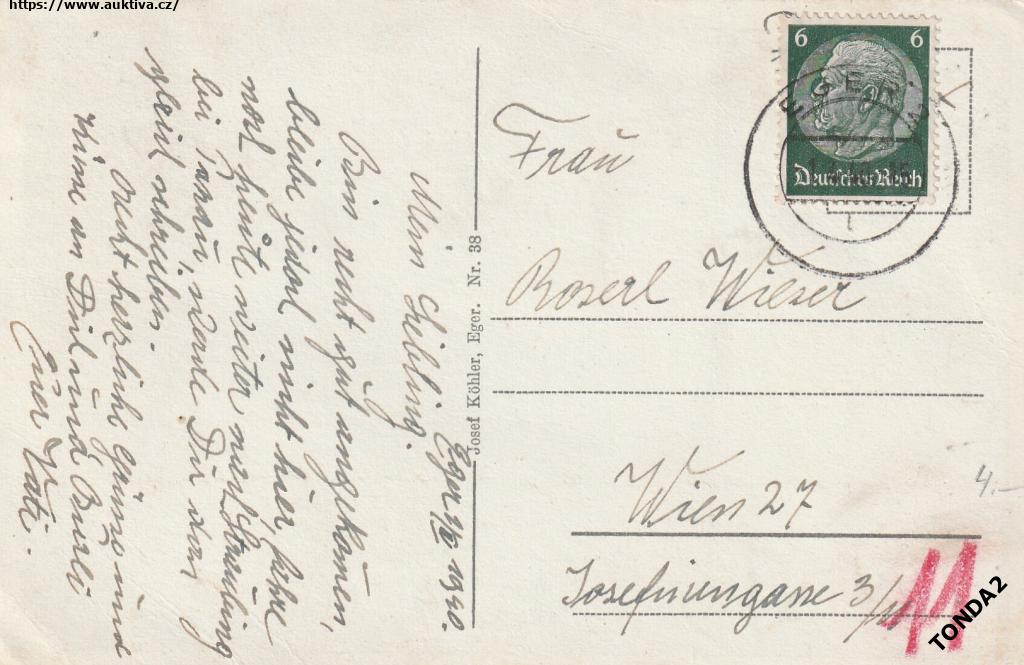 https://www.auktiva.cz/
6 6
Deutsches Reich
EGER
Eger 1940.
Mein Liebling.
Bin recht gut angekomen,
bleibe jedoch nicht hier, fahre
noch heute weiter nach Straubing
bei Passau, werde Dir dan
gleich schreiben.
Recht herzliche Grüsse und
Küsse an Dich und Burli
Euer Vati.
Josef Köhler, Eger. Nr. 38
Frau
Roserl Wieser
Wien 27
Josefinengasse 3/11
11
4.-
TONDA2